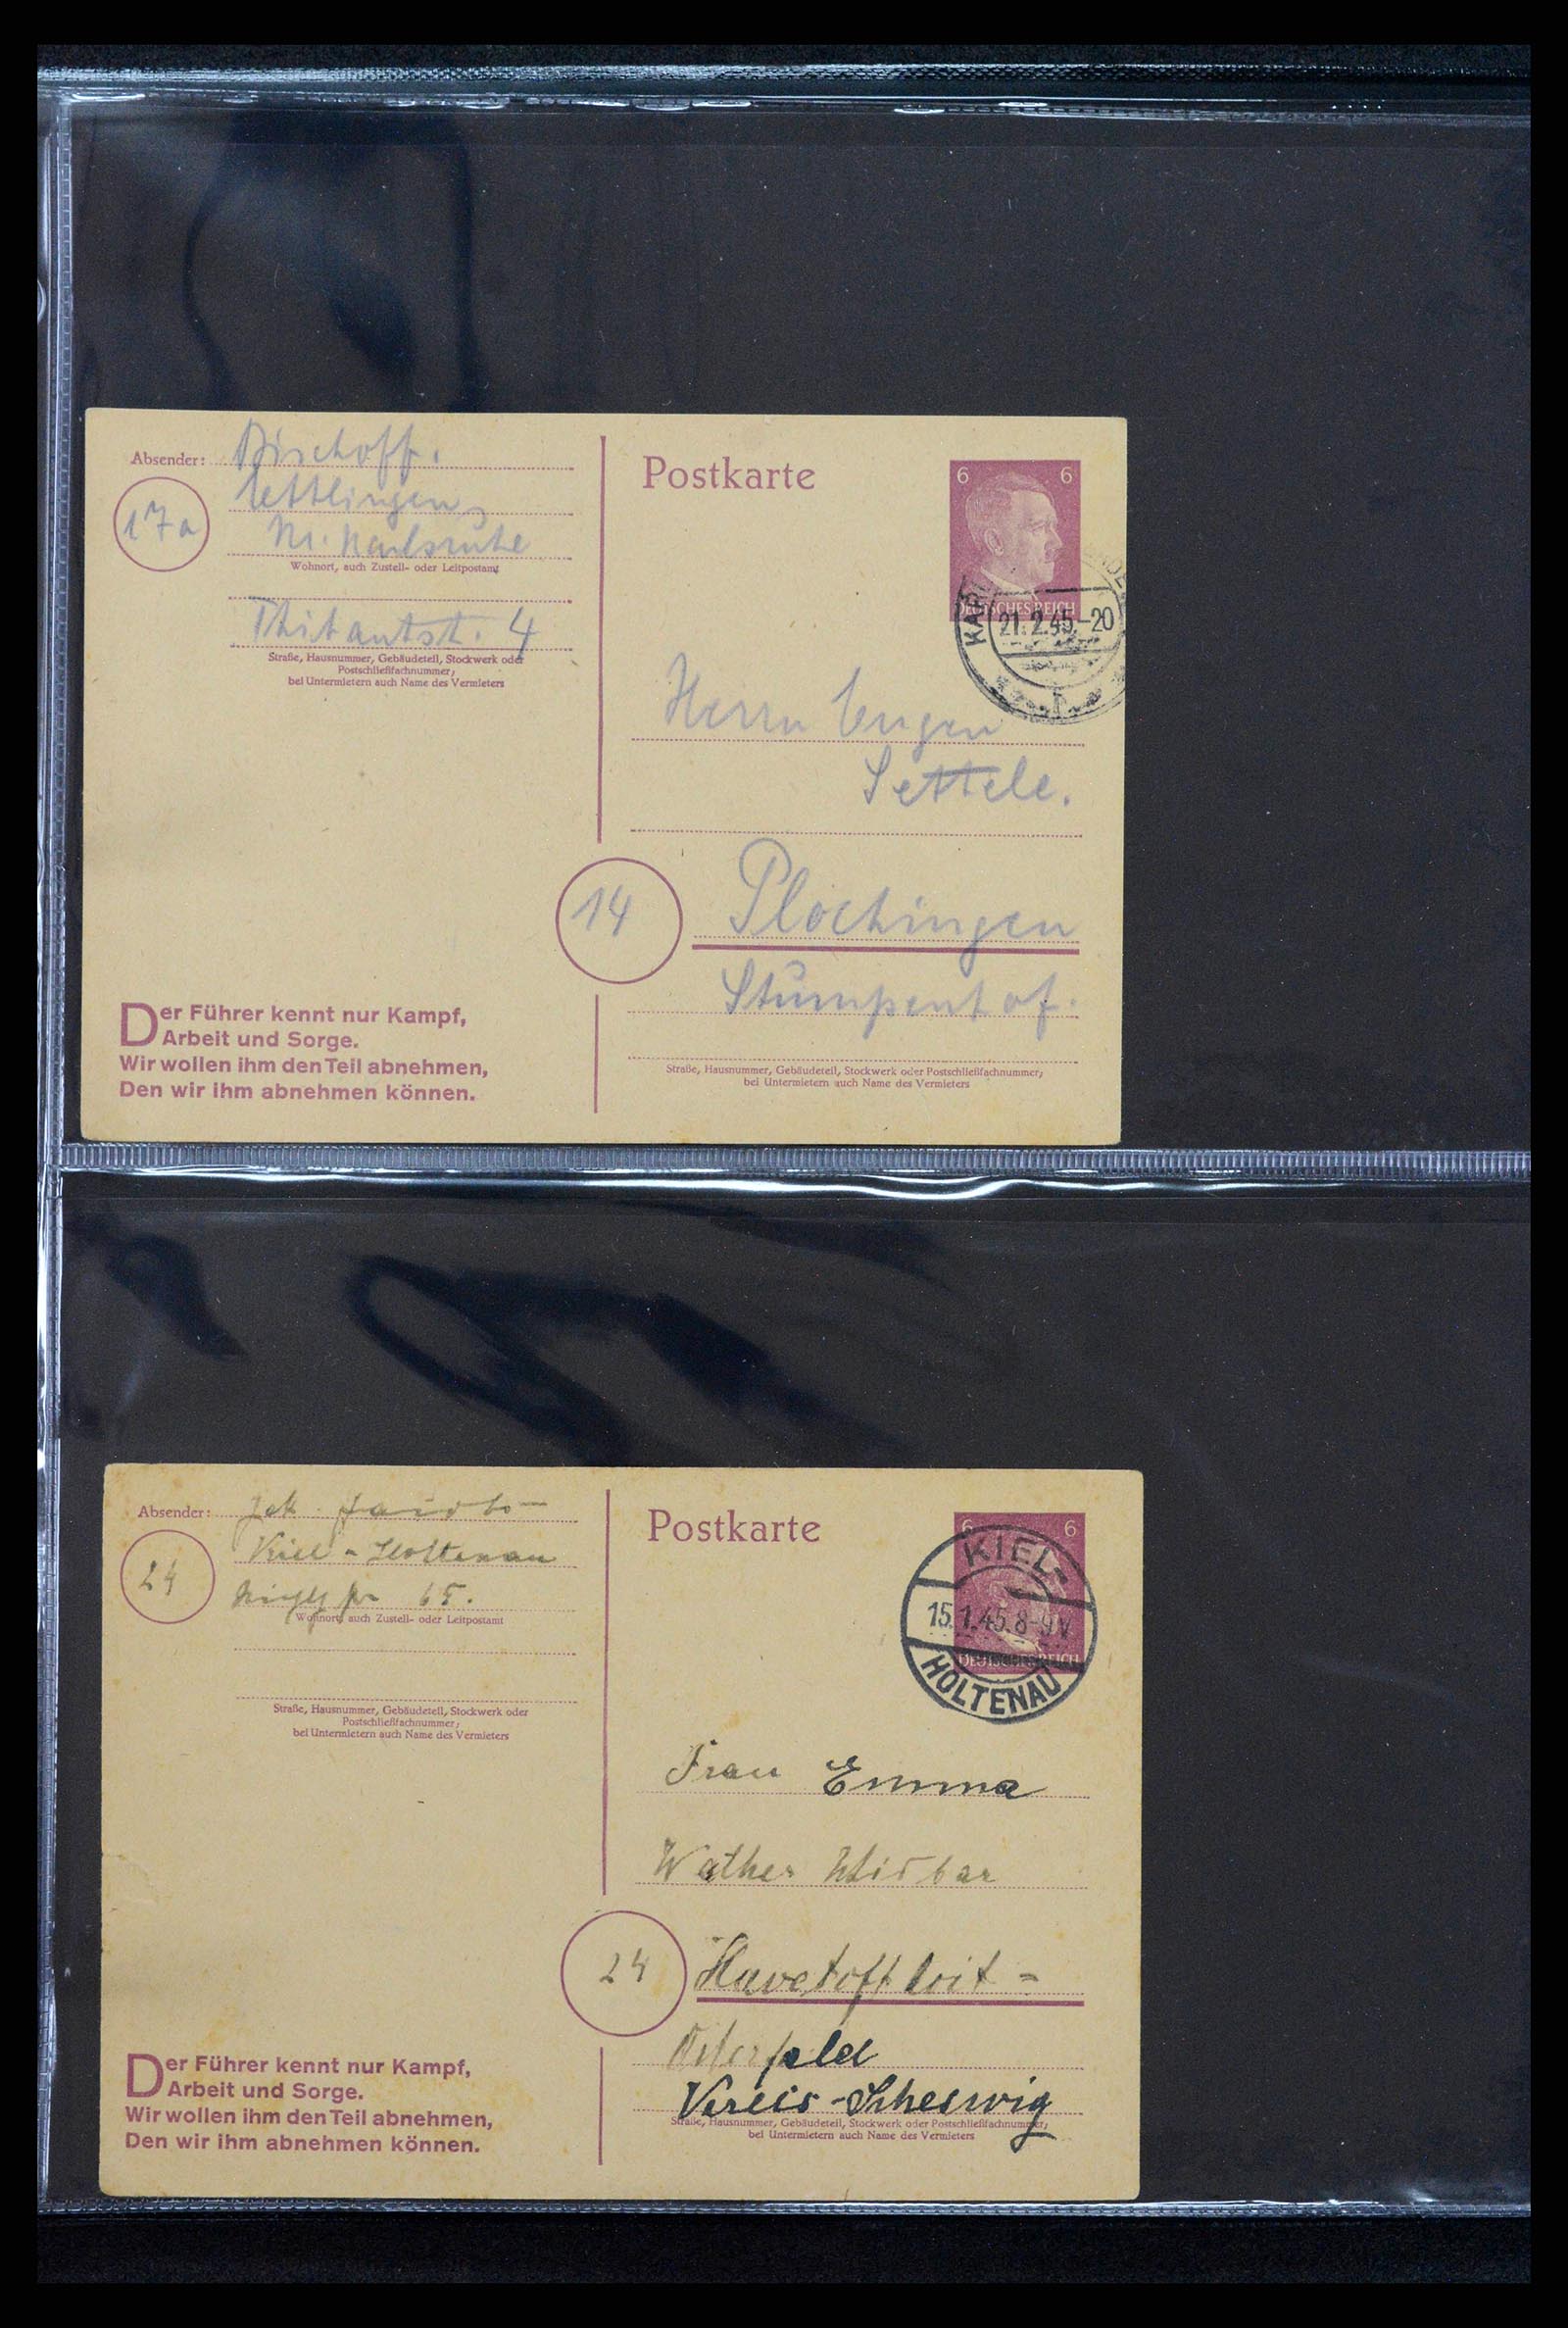 Absender: Bischoff.
Ettlingen,
17a
Kr. Karlsruhe
Wohnort, auch Zustell- oder Leitpostamt
4
Straße, Hausnummer, Gebäudeteil, Stockwerk oder
Postschließfachnummer;
bei Untermietern auch Name des Vermieters
Der Führer kennt nur Kampf,
Arbeit und Sorge.
Wir wollen ihm den Teil abnehmen,
Den wir ihm abnehmen können.
Postkarte
6 6
DEUTSCHES REICH
21.2.45.-20
Herrn Eugen
Settele.
14
Plochingen
Stumpenhof.
Straße, Hausnummer, Gebäudeteil, Stockwerk oder Postschließfachnummer;
bei Untermietern auch Name des Vermieters
Absender:
Kiel-Holtenau
24
65.
Wohnort, auch Zustell- oder Leitpostamt
Straße, Hausnummer, Gebäudeteil, Stockwerk oder
Postschließfachnummer;
bei Untermietern auch Name des Vermieters
Der Führer kennt nur Kampf,
Arbeit und Sorge.
Wir wollen ihm den Teil abnehmen,
Den wir ihm abnehmen können.
Postkarte
6 6
DEUTSCHES REICH
KIEL-
15.1.45.8-9V
HOLTENAU
Frau Emma
24
Havetoftloit=
Straße, Hausnummer, Gebäudeteil, Stockwerk oder Postschließfachnummer;
bei Untermietern auch Name des Vermieters